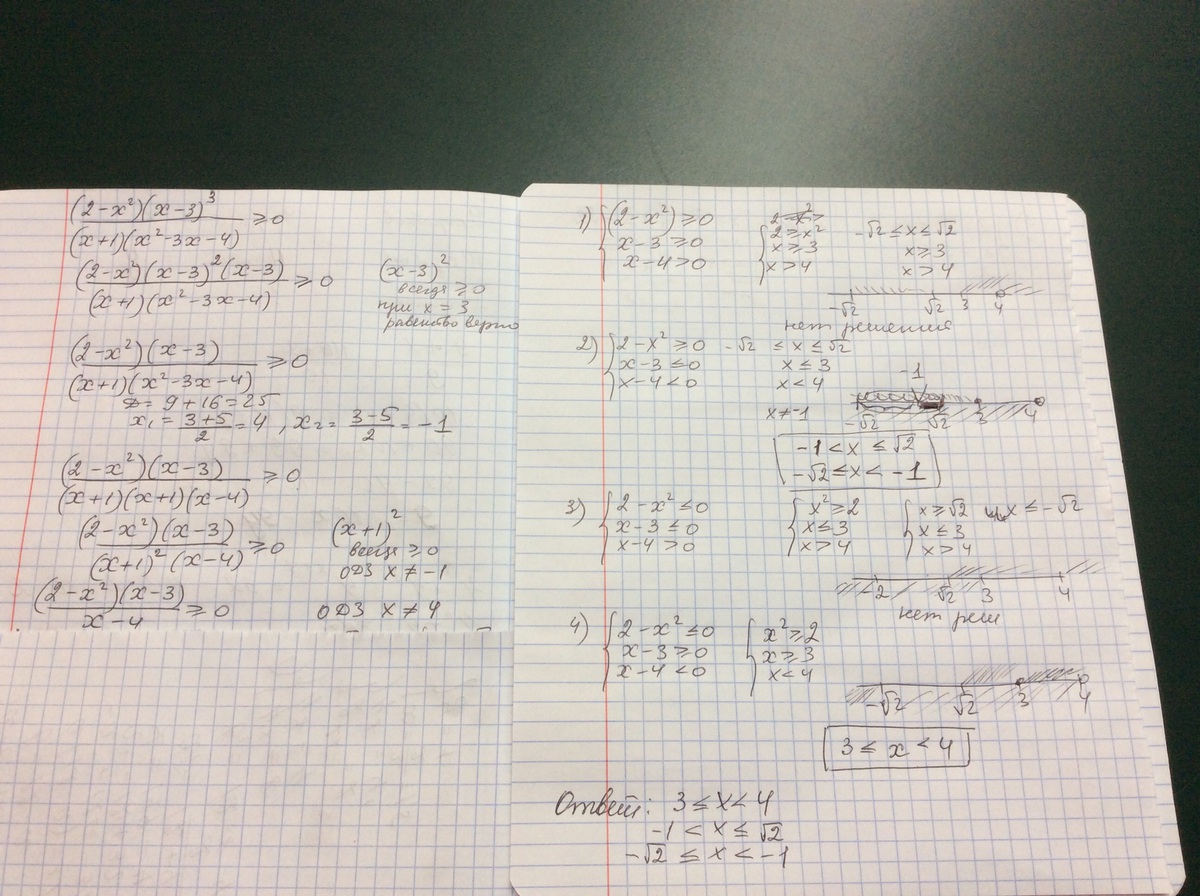 (2-x²)(x-3)³ / (x+1)(x²-3x-4) ≥ 0
(2-x²)(x-3)²(x-3) / (x+1)(x²-3x-4) ≥ 0
(x-3)²
всегда ≥ 0
при x = 3
равенство верно
(2-x²)(x-3) / (x+1)(x²-3x-4) ≥ 0
D = 9+16 = 25
x₁ = (3+5)/2 = 4, x₂ = (3-5)/2 = -1
(2-x²)(x-3) / (x+1)(x+1)(x-4) ≥ 0
(2-x²)(x-3) / (x+1)²(x-4) ≥ 0
(x+1)²
всегда ≥ 0
ОДЗ x ≠ -1
(2-x²)(x-3) / x-4 ≥ 0
ОДЗ x ≠ 4
1) { (2-x²) ≥ 0 2-x² ≥
x-3 ≥ 0 { 2 ≥ x² -√2 ≤ x ≤ √2
x-4 > 0 x ≥ 3 x ≥ 3
x > 4 x > 4
-√2 √2 3 4
нет решения
2) { 2-x² ≥ 0 -√2 ≤ x ≤ √2
x-3 ≤ 0 x ≤ 3
x-4 < 0 x < 4
-1
x ≠ -1
-√2 √2 3 4
-1 < x ≤ √2
-√2 ≤ x < -1
3) { 2-x² ≤ 0 { x² ≥ 2 { x ≥ √2 или x ≤ -√2
x-3 ≤ 0 x ≤ 3 x ≤ 3
x-4 > 0 x > 4 x > 4
-2 √2 3 4
нет реш
4) { 2-x² ≤ 0 { x² ≥ 2
x-3 ≥ 0 x ≥ 3
x-4 < 0 x < 4
-√2 √2 3 4
3 ≤ x < 4
Ответ: 3 ≤ x < 4
-1 < x ≤ √2
-√2 ≤ x < -1